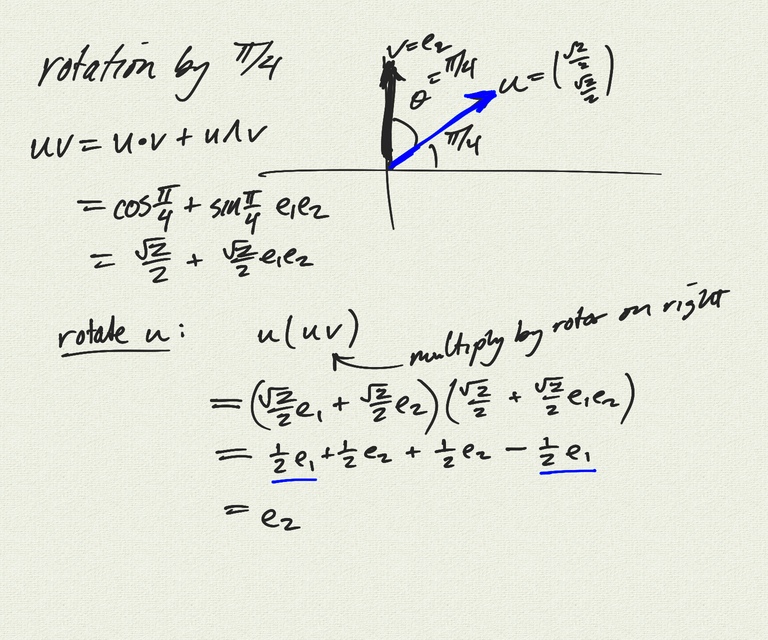 rotation by π/4
v=e₂
θ=π/4
u=(√2/2 √2/2)
π/4
uv = u•v + u∧v
= cos π/4 + sin π/4 e₁e₂
= √2/2 + √2/2 e₁e₂
rotate u: u(uv)
multiply by rotor on right
= (√2/2 e₁ + √2/2 e₂)(√2/2 + √2/2 e₁e₂)
= 1/2 e₁ + 1/2 e₂ + 1/2 e₂ − 1/2 e₁
= e₂